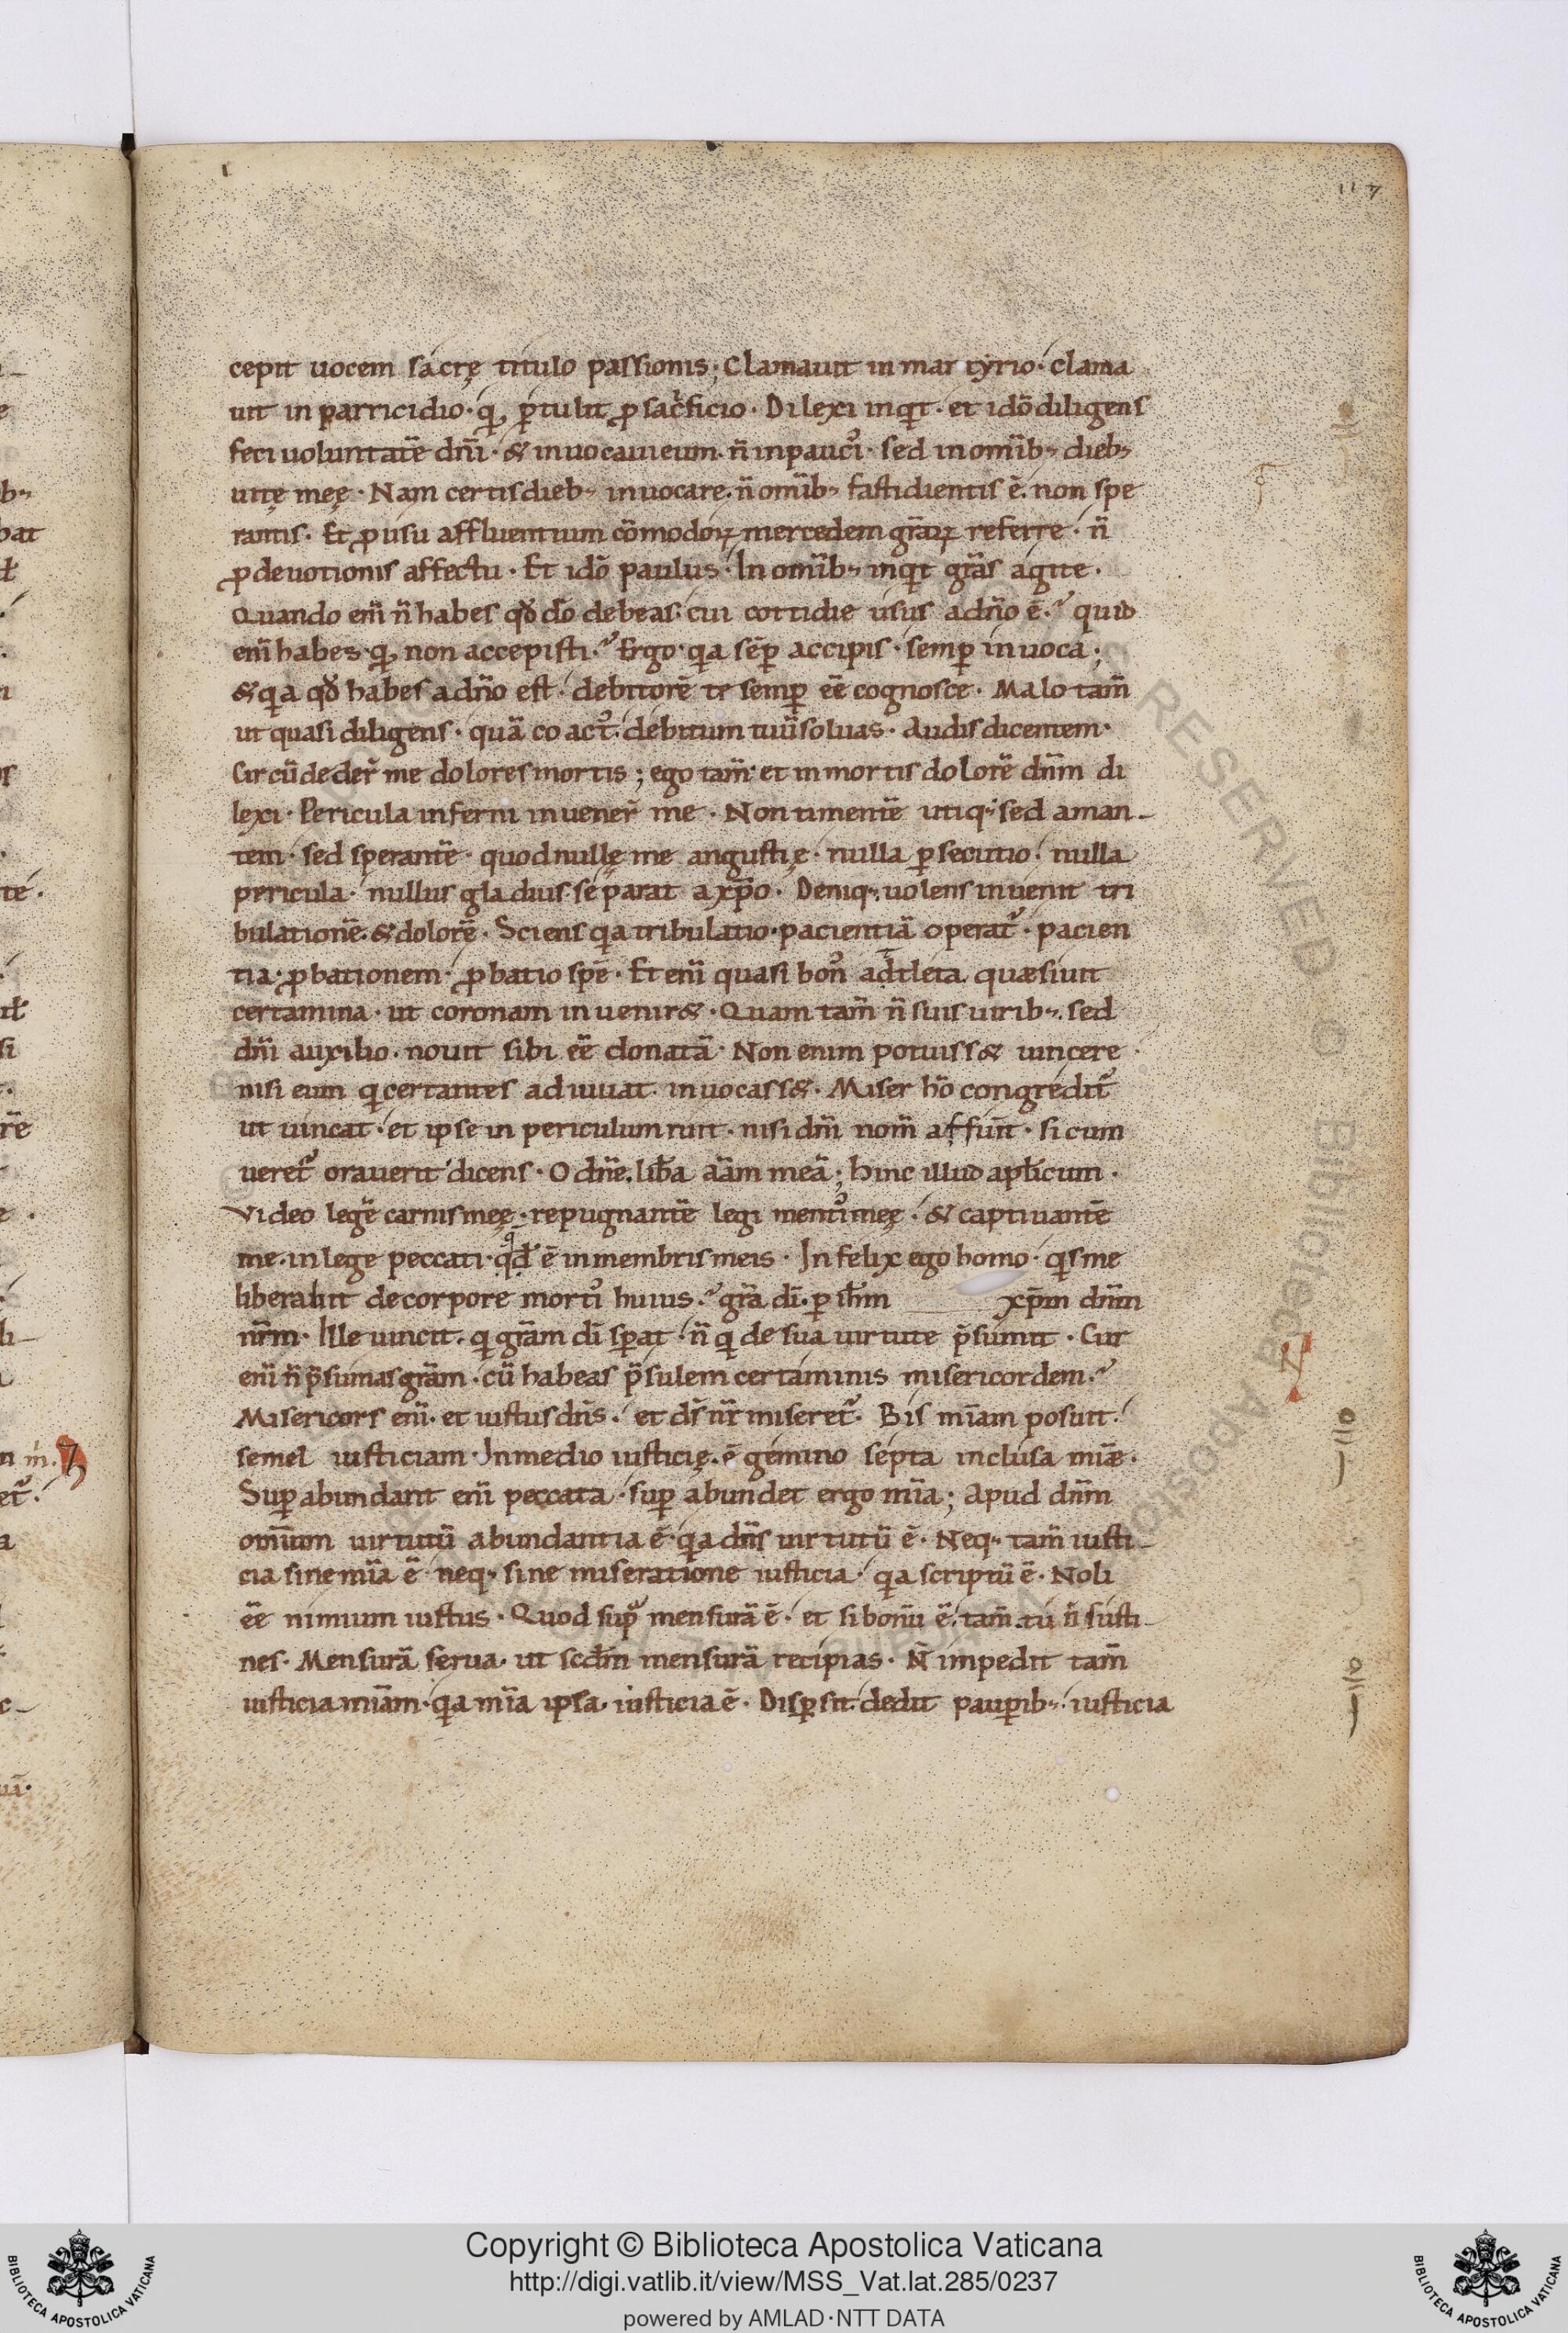 117
cepit uocem sacrę titulo passionis; Clamauit in martyrio· clama
uit in parricidio· qđ ꝑtulit ꝓ sac̄ficio· Dilexi inqͥt· et idō diligens
feci uoluntatē dn̄i· & inuocaui eum· n̄ in pauci᷒· sed in om̄ib; dieb;
uitę meę· Nam certis dieb; inuocare· n̄ om̄ib; fastidientis ē· non spe
rantis· Et ꝓ usu affluentium cōmodoꝝ mercedem gr̄aꝝ referre· n̄
ꝓ deuotionis affectu· Et idō paulus· In om̄ib; inqͥt gr̄as agite·
Quando eni̅ n̄ habes qđ dō debeas· cui cottidie usus a dn̄o ē·? quid
eni̅ habes· qđ non accepisti·? Ergo· qͥa sēꝑ accipis· semꝑ inuoca;
& qͥa qđ habes a dn̄o est· debitorē te semꝑ eē cognosce· Malo tam̄
ut quasi diligens· quā coact᷒· debitum tuū soluas· Audis dicentem·
Circūdeder̄ me dolores mortis; ego tam̄ et in mortis dolorē dn̄m di
lexi· Pericula inferni inuener̄ me· Non timentē utiq; sed aman-
tem· sed sperantē· quod nullę me angustię· nulla ꝑsecutio· nulla
pericula· nullus gladius separat a xp̄o· Deniq; uolens inuenit tri
bulationē· & dolorē· Sciens qͥa tribulatio· pacientiā operat᷑· pacien
tia· ꝓbationem· ꝓbatio spē· Et eni̅ quasi bon᷒ adtleta quæsiuit
certamina· ut coronam inuenir&· Quam tam̄ n̄ suis uirib;· sed
dn̄i auxilio· nouit sibi eē donatā· Non enim potuiss& uincere
nisi eum qͥ certantes adiuuat inuocass&· Miser hō congredit᷑
ut uincat· et ipse in periculum ruit· nisi dn̄i nom̄ affuīt· si cum
ueret᷑ orauerit dicens· O dn̄e· lib̄a aīam meā; hinc illud apl̄icum·
Video legē carnis meę· repugnantē legi menti᷒ meę· & captiuantē
me· in lege peccati· qđ ē in membris meis· Infelix ego homo· qͥs me
liberabit de corpore morti᷒ huius·? gr̄a dī· ꝑ ih̄m xp̄m dn̄m
nr̄m· Ille uincit· qͥ gr̄am dī sꝑat· n̄ qͥ de sua uirtute p̄sumit· Cur
eni̅ n̄ p̄sumas gr̄am· cū habeas p̄sulem certaminis misericordem·?
Misericors eni̅· et iustus dn̄s· et ds̄ nr̄ miseret᷑· Bis mīam posuit·
semel iusticiam· In medio iusticię· ē gemino septa inclusa mīæ·
Suꝑabundant eni̅ peccata· suꝑabundet ergo mīa; Apud dn̄m
om̄ium uirtutū abundantia ē· qͥa dn̄s uirtutū ē· Neq; tam̄ iusti-
cia sine mīa ē neq; sine miseratione iusticia· qͥa scriptū ē· Noli
eē nimium iustus· Quod supͣ mensurā ē· et si bonū ē· tam̄ tu n̄ susti-
nes· Mensurā serua· ut scd̄m mensurā recipias· N̄ impedit tam̄
iusticia mīam· qͥa mīa ipsa· iusticia ē· Disꝑsit· dedit pauꝑib;· iusticia
Copyright © Biblioteca Apostolica Vaticana
http://digi.vatlib.it/view/MSS_Vat.lat.285/0237
powered by AMLAD·NTT DATA